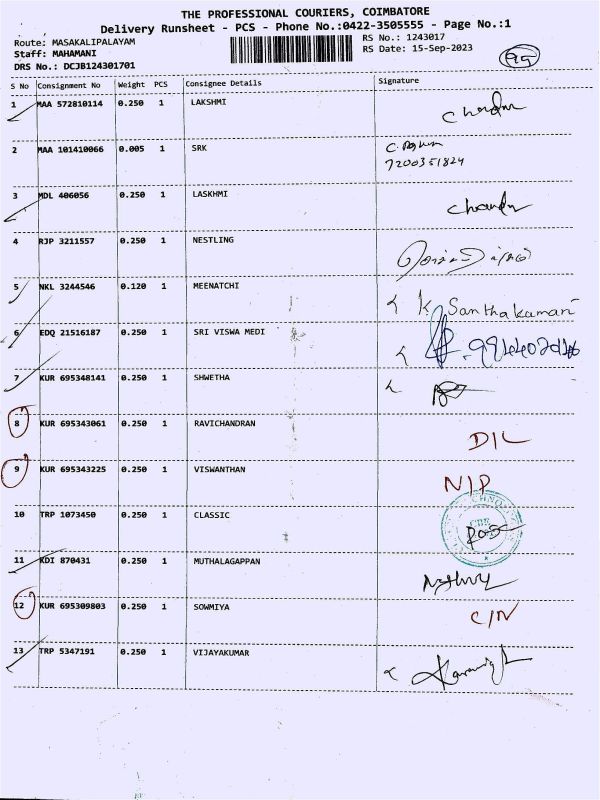 THE PROFESSIONAL COURIERS, COIMBATORE
Delivery Runsheet - PCS - Phone No.:0422-3505555 - Page No.:1
Route: MASAKALIPALAYAM
Staff: MAHAMANI
DRS No.: DCJB124301701
RS No.: 1243017
RS Date: 15-Sep-2023
S No Consignment No Weight PCS Consignee Details Signature
1 MAA 572810114 0.250 1 LAKSHMI
2 MAA 101410066 0.005 1 SRK
7200351824
3 MDL 406056 0.250 1 LASKHMI
4 RJP 3211557 0.250 1 NESTLING
5 NKL 3244546 0.120 1 MEENATCHI K. Santhakamani
6 EDQ 21516187 0.250 1 SRI VISWA MEDI
7 KUR 695348141 0.250 1 SHWETHA
8 KUR 695343061 0.250 1 RAVICHANDRAN D/L
9 KUR 695343225 0.250 1 VISWANTHAN N/P
10 TRP 1073450 0.250 1 CLASSIC CBE
11 KDI 870431 0.250 1 MUTHALAGAPPAN
12 KUR 695309803 0.250 1 SOWMIYA C/N
13 TRP 5347191 0.250 1 VIJAYAKUMAR